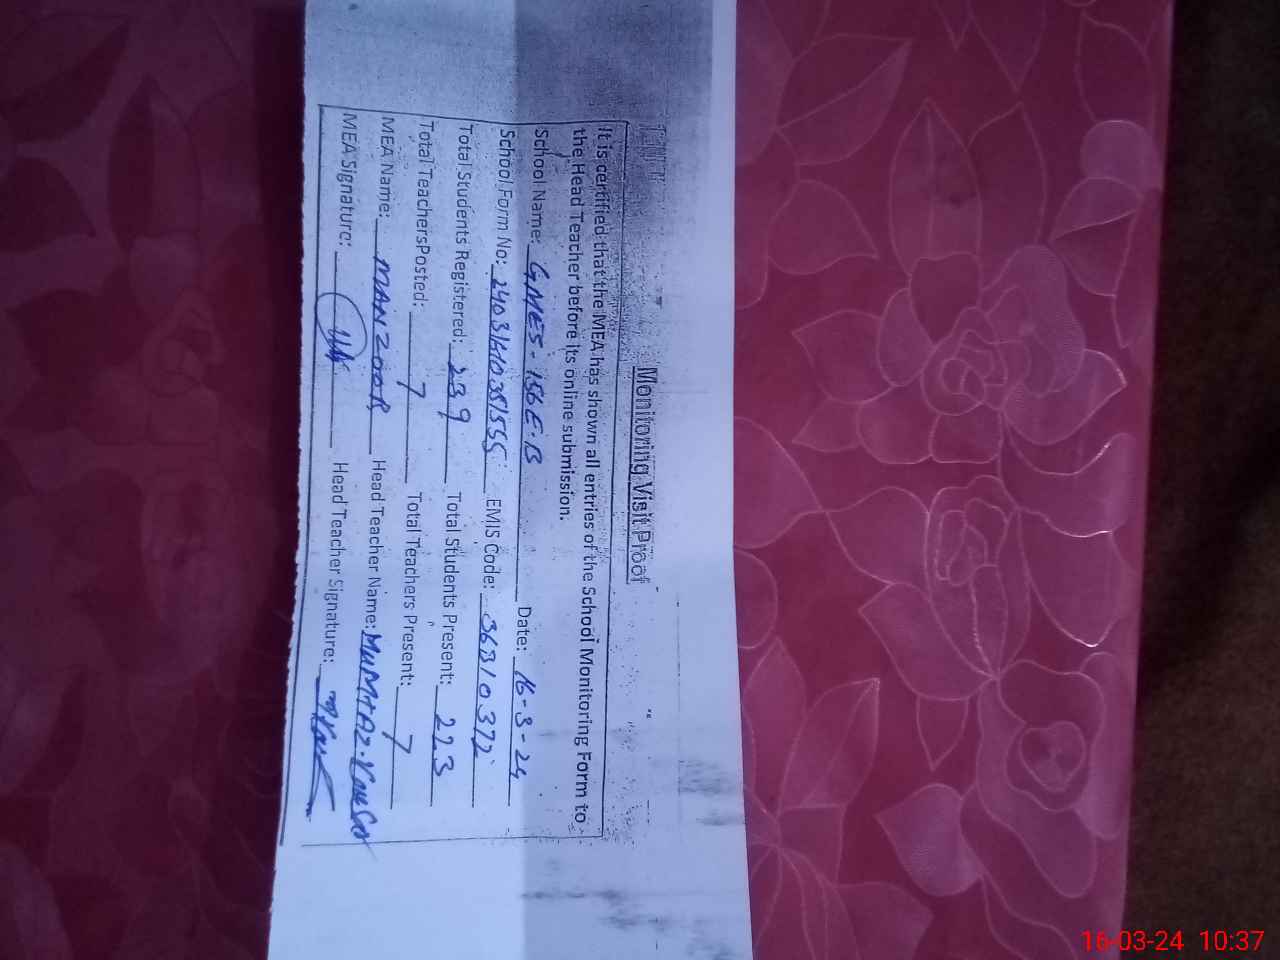 Monitoring Visit Proof
It is certified that the MEA has shown all entries of the School Monitoring Form to
the Head Teacher before its online submission.
School Name: GMES-156E-B Date: 16-3-24
School Form No: EMIS Code: 36310372
Total Students Registered: 239 Total Students Present: 223
Total TeachersPosted: 7 Total Teachers Present: 7
MEA Name: MANZOOR Head Teacher Name: MUMTAZ
MEA Signature: Head Teacher Signature:
16-03-24 10:37